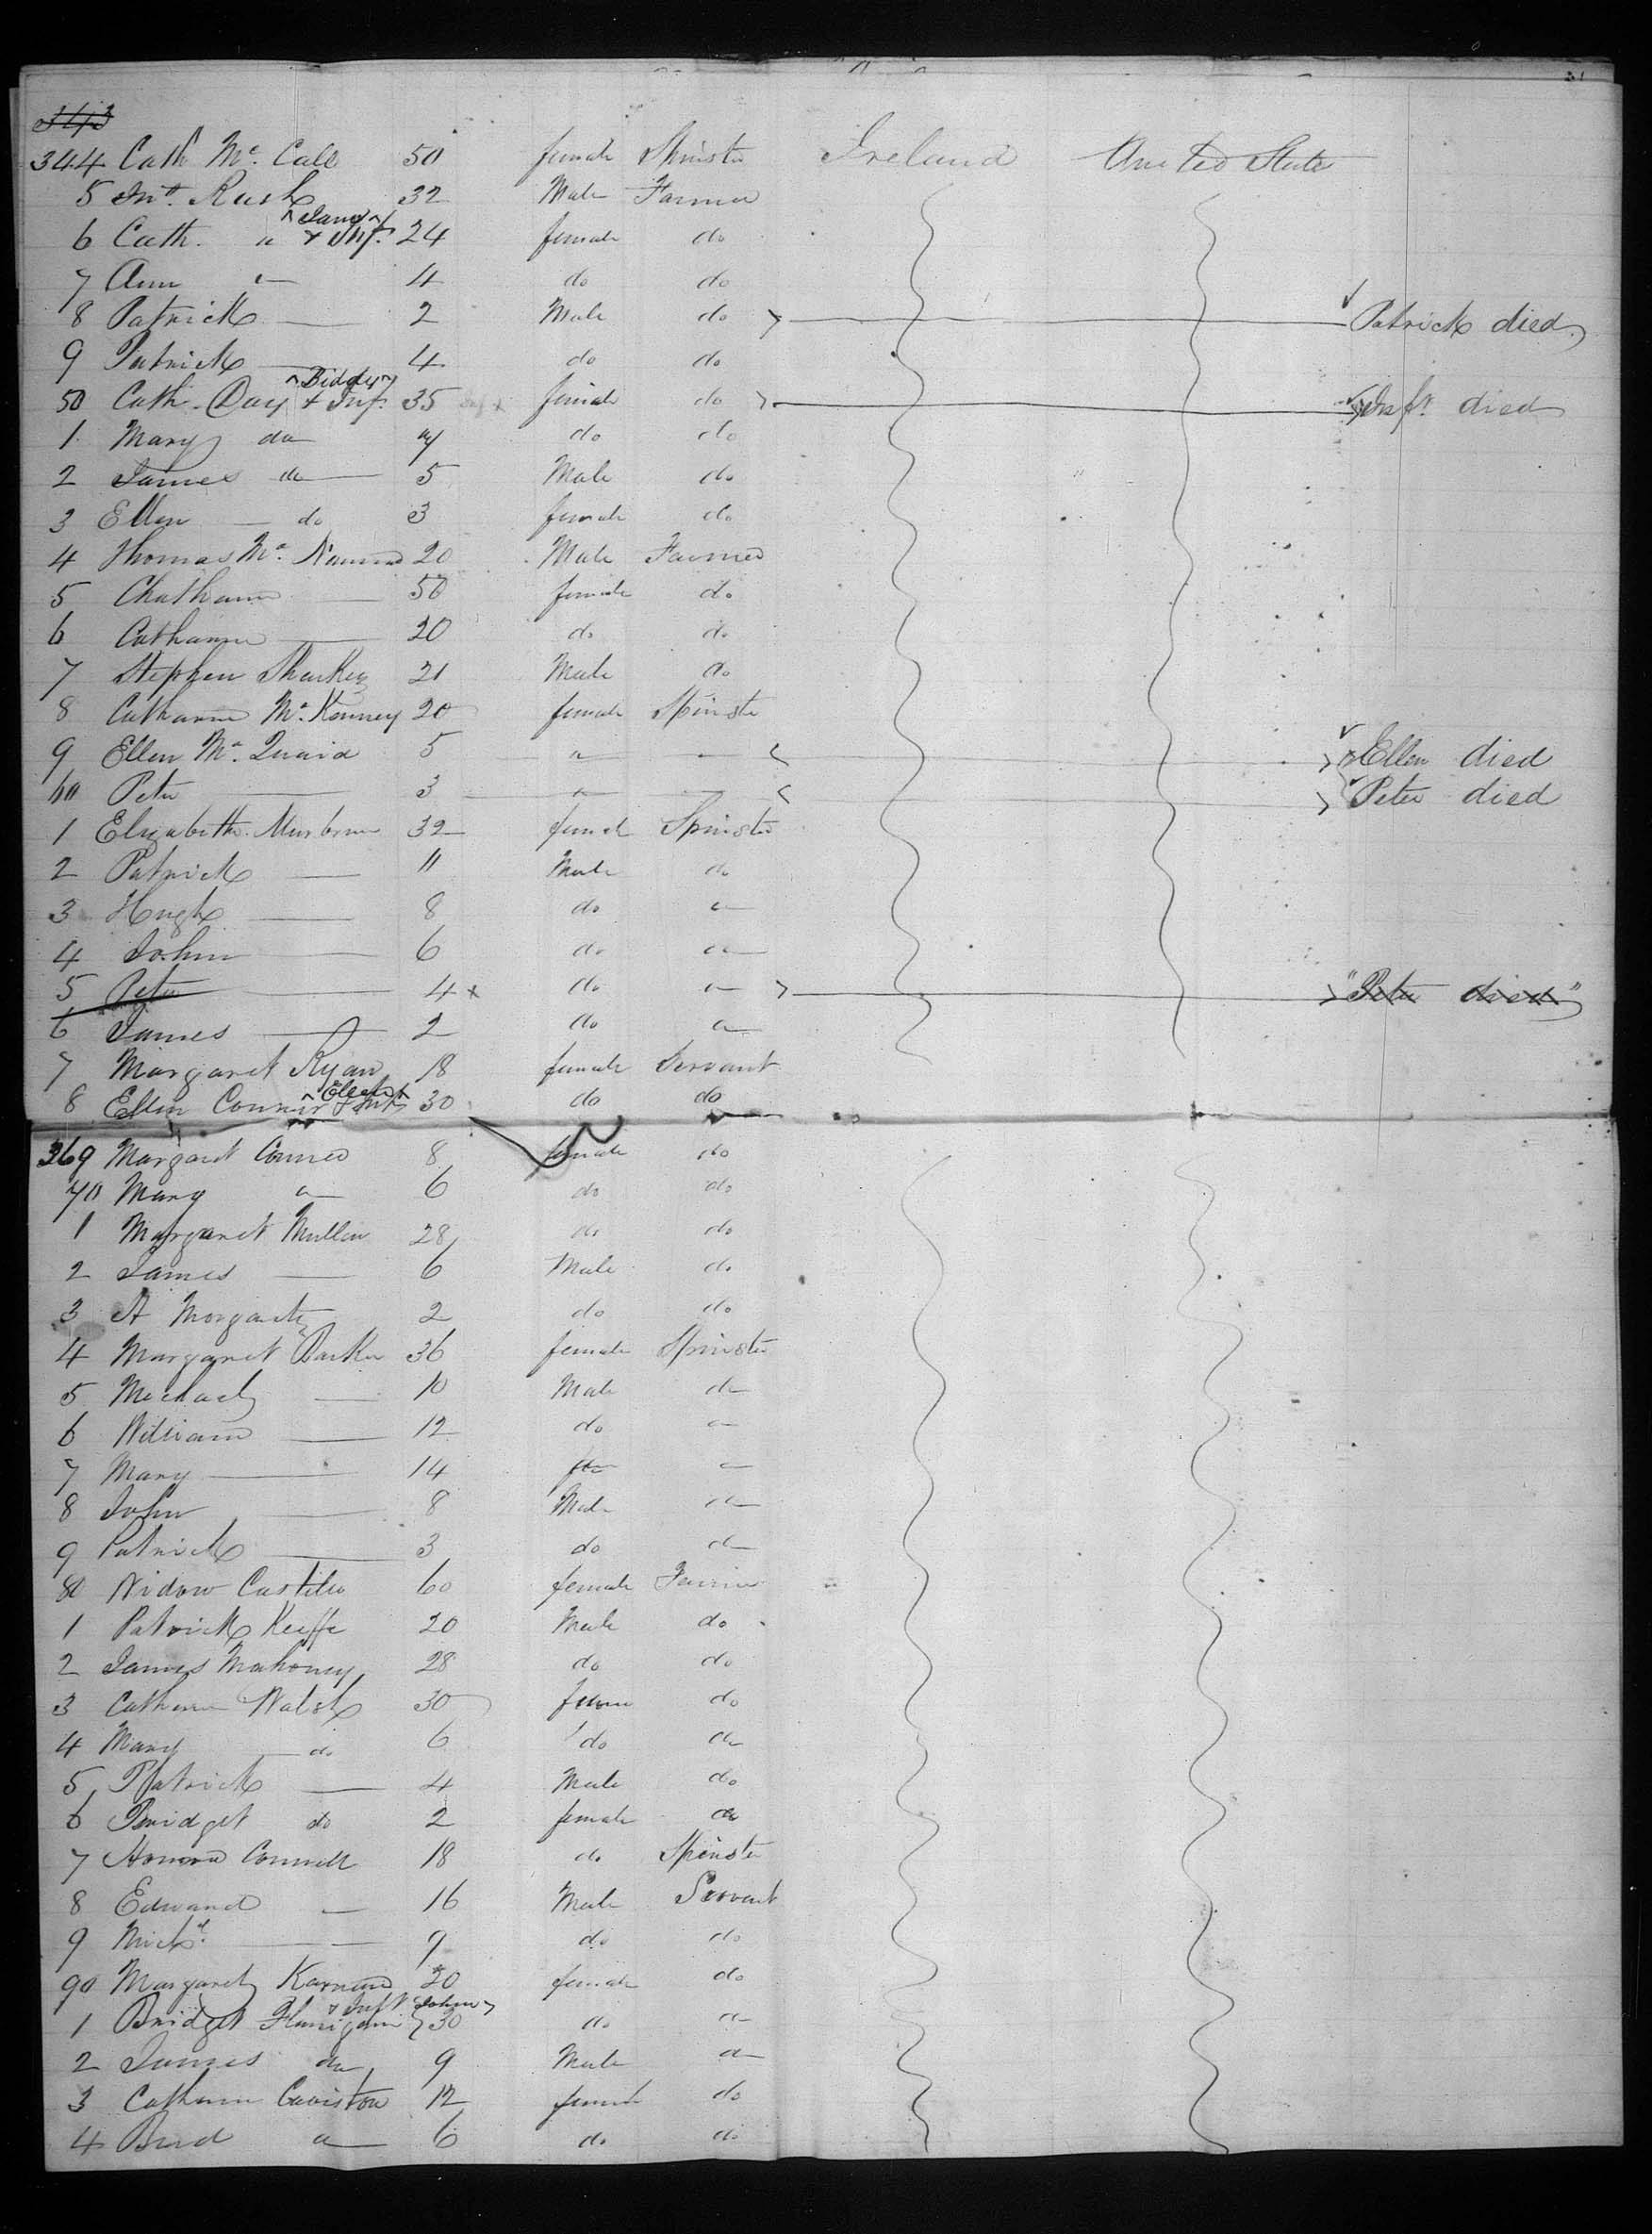 343
344 Cath Mc. Call 50 female Spinster Ireland United States
5 Jno. Rush 32 Male Farmer
^Jane^
6 Cath. " & Inft. 24 female do
7 Ann " 4 do do
8 Patrick — 2 Male do Patrick died
9 Patrick — 4 do do
^Biddy^
50 Cath. Day & Inf. 35 female do Inft. died
1 Mary do 7 do do
2 James do 5 Male do
3 Ellen — do 3 female do
4 Thomas Mc. 20 Male Farmer
5 Chatharn — 50 female do
6 Catharine — 20 do do
7 Stephen Sharkey 21 Male do
8 Catharine Mc. Kenney 20 female Spinster
9 Ellen Mc. Quaid 5 " " Ellen died
60 Peter — 3 " — Peter died
1 Elizabeth 32 female Spinster
2 Patrick — 11 Male do
3 Hugh — 8 do "
4 John — 6 do "
5 Peter — 4 x do " "Peter died"
6 James — 2 do "
7 Margaret Ryan 18 female Servant
8 Ellen Connor & Inft 30 do do
369 Margaret Connor 8 female do
70 Mary " 6 do do
1 Margaret Mullen 28 do do
2 James — 6 Male do
3 A Morgaret 2 do do
4 Margaret Barker 36 female Spinster
5 Michael — 10 Male do
6 William — 12 do "
7 Mary — 14 fe "
8 John — 8 Male "
9 Patrick — 3 do do
80 Widow Costilew 60 female Farmer
1 Patrick Keeffe 20 Male do
2 James Mahoney 28 do do
3 Catharn Walsh 30 female do
4 Mary — do 6 do do
5 Patrick — 4 Male do
6 Bridget do 2 female do
7 Honora Connell 18 do Spinster
8 Edward — 16 Male Servant
9 Michl. — 9 do do
90 Margaret 20 female do
& Inft John
1 Bridget Flanigann } 30 do "
2 James do 9 Male "
3 Catharn Caviston 12 female do
4 Brid " 6 do do